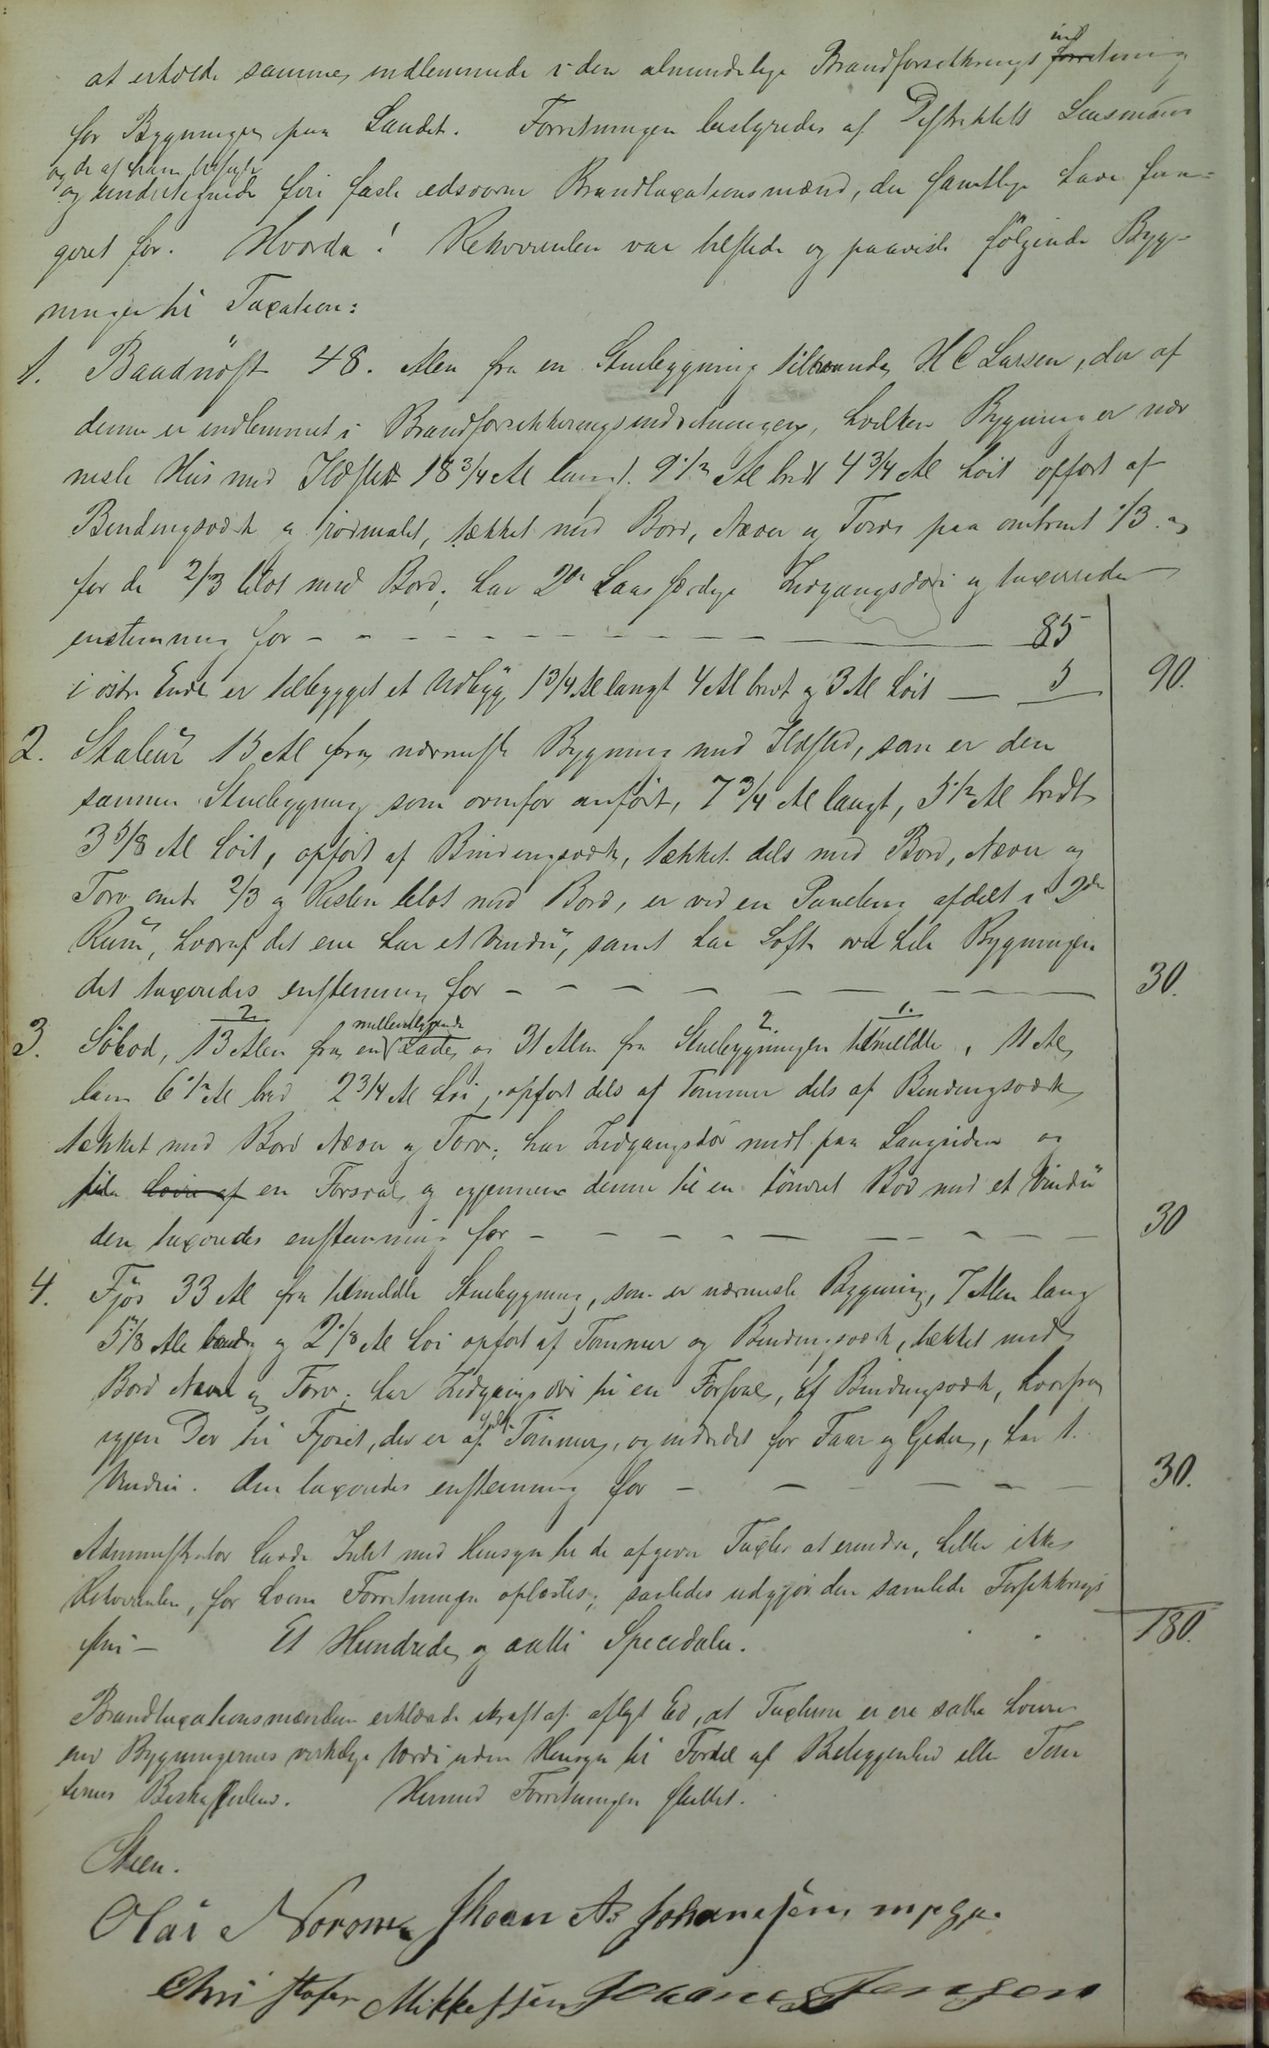 at erholde samme indlemmede i den almindelige Brandforsikrings indretning
for Bygninger paa Landet. Forretningen bestyredes af Distriktets Lensmand
og de af ham
og undertegnede fire faste edsvorne Brandtaxationsmænd, der samtlige have fun-
geret før. Hvorda! Rekvirenten var tilstede og paaviste følgende Byg-
ninger til Taxation:
1. Baadnøst 48. Alen fra en Stuebygning tilhørende H C Larsen, der af
denne er indlemmet i Brandforsikkringsindretningen, hvilken Bygning er nær
meste Hus med Ildsted 18 3/4 Al langt. 9 1/2 Al bredt 4 3/4 Al høit opført af
Bindingsværk og rødmalet, tækket med Bord, Næver og Torv paa omtrent 1/3. og
for de 2/3 blot med Bord; har 2de Laasfærdige Indgangsdøre og taxeredes
enstemmig for - - - - - - - - 85
i østre Ende er tilbygget et Udbyg, 1 3/4 Al langt 4 Al bredt og 3 Al høit — 5 90.
2. Stabur 15 Al fra nærmeste Bygning med Ildsted, som er den
samme Stuebygning som ovenfor anført, 7 3/4 Al langt, 5 1/2 Al bredt
3 5/8 Al høit, opført af Bindingsværk, tækket dels med Bord, Næver og
Torv omtr 2/3 og Resten blot med Bord, er ved en Paneling afdelt i 2de
Rum, hvoraf det ene har et Vindu, samt har Loft over hele Bygningen
det taxeredes enstemmig for - - - - - - 30.
3. Søbod, 13 Alen fra en mellemliggende Lade, og 31 Alen fra Stuebygningen bemeldte, 11 Al
lang 6 1/2 Al bred 2 3/4 Al høi, opført dels af Tømmer dels af Bindingsværk
tækket med Bord Næver og Torv; har Indgangsdør midt paa Langsiden og
en Forsval, og igjennem denne til en tømret Bod med et Vindu
den taxeredes enstemmig for - - - - - - 30
4. Fjøs 33 Al fra bemeldte Stuebygning, som er nærmeste Bygning, 7 Alen lang
5 1/8 Al bred og 2 1/8 Al høi opført af Tømmer og Bindingsværk, tækket med
Bord Næver og Torv; har Indgangsdør til en Forsval, af Bindingsværk, hvorfra
igjen Dør til Fjøset, der er af Tømmer, og indredet for Faar og Geder, har 1.
Vindu. Den taxeredes enstemmig for - - - - - 30.
Administrator havde Intet med Hensyn til de afgivne Taxter at erindre, heller ikke
Rekvirenten, for hvem Forretningen oplæstes; saaledes udgjør den samlede Forsikkrings
sum — Et Hundrede og aatti Speciedaler. 180.
Brandtaxationsmændene erklærede i kraft af aflagt Ed, at Taxterne er ere satte hvem
end Bygningernes virkelige Værdi uden Hensyn til Fordel af Beliggenhed eller Tom
ternes Beskaffenhed. Hermed Forretningen sluttet.
Steen.
Olai Johan As Johannesen mpp.
Christofer Mikkelsen Johannes Jensen